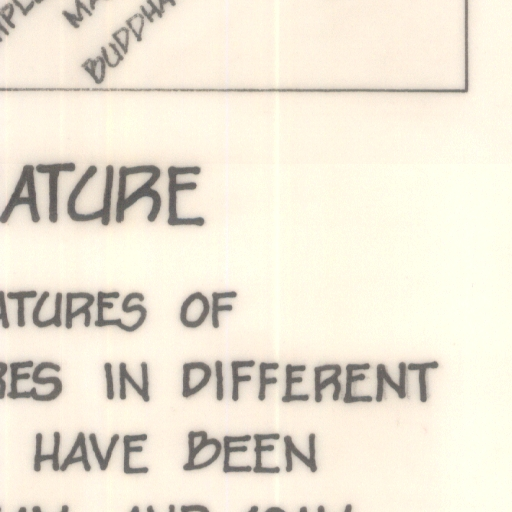 BUDDHA
ATURE
ATURES OF
RES IN DIFFERENT
HAVE BEEN